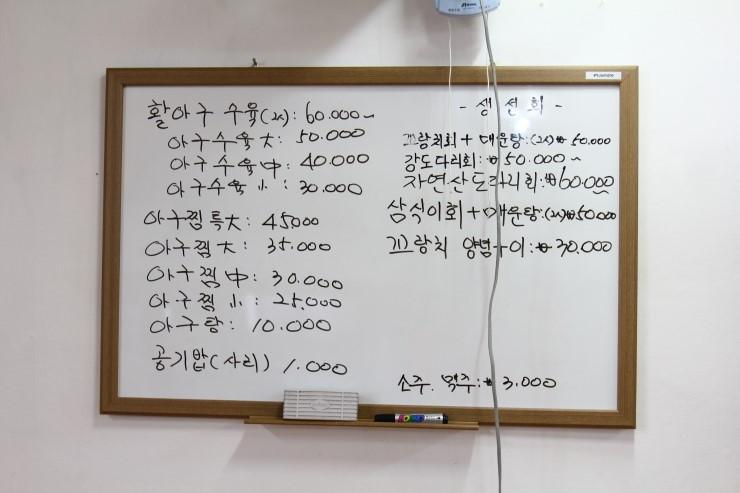 활아구 수육(2人): 60.000~
아구수육 大: 50.000
아구수육 中: 40.000
아구수육 小: 30.000
아구찜 특大: 45000
아구찜 大: 35.000
아구찜 中: 30.000
아구찜 小: 25.000
아구탕: 10.000
공기밥(사리) 1.000
- 생선회 -
고랑치회 + 매운탕:(2人)₩50.000
강도다리회:₩50.000~
자연산도다리회:₩60.000
삼식이회+매운탕:(2人)₩50000
고랑치 양념구이:₩30.000
소주. 맥주:₩3.000